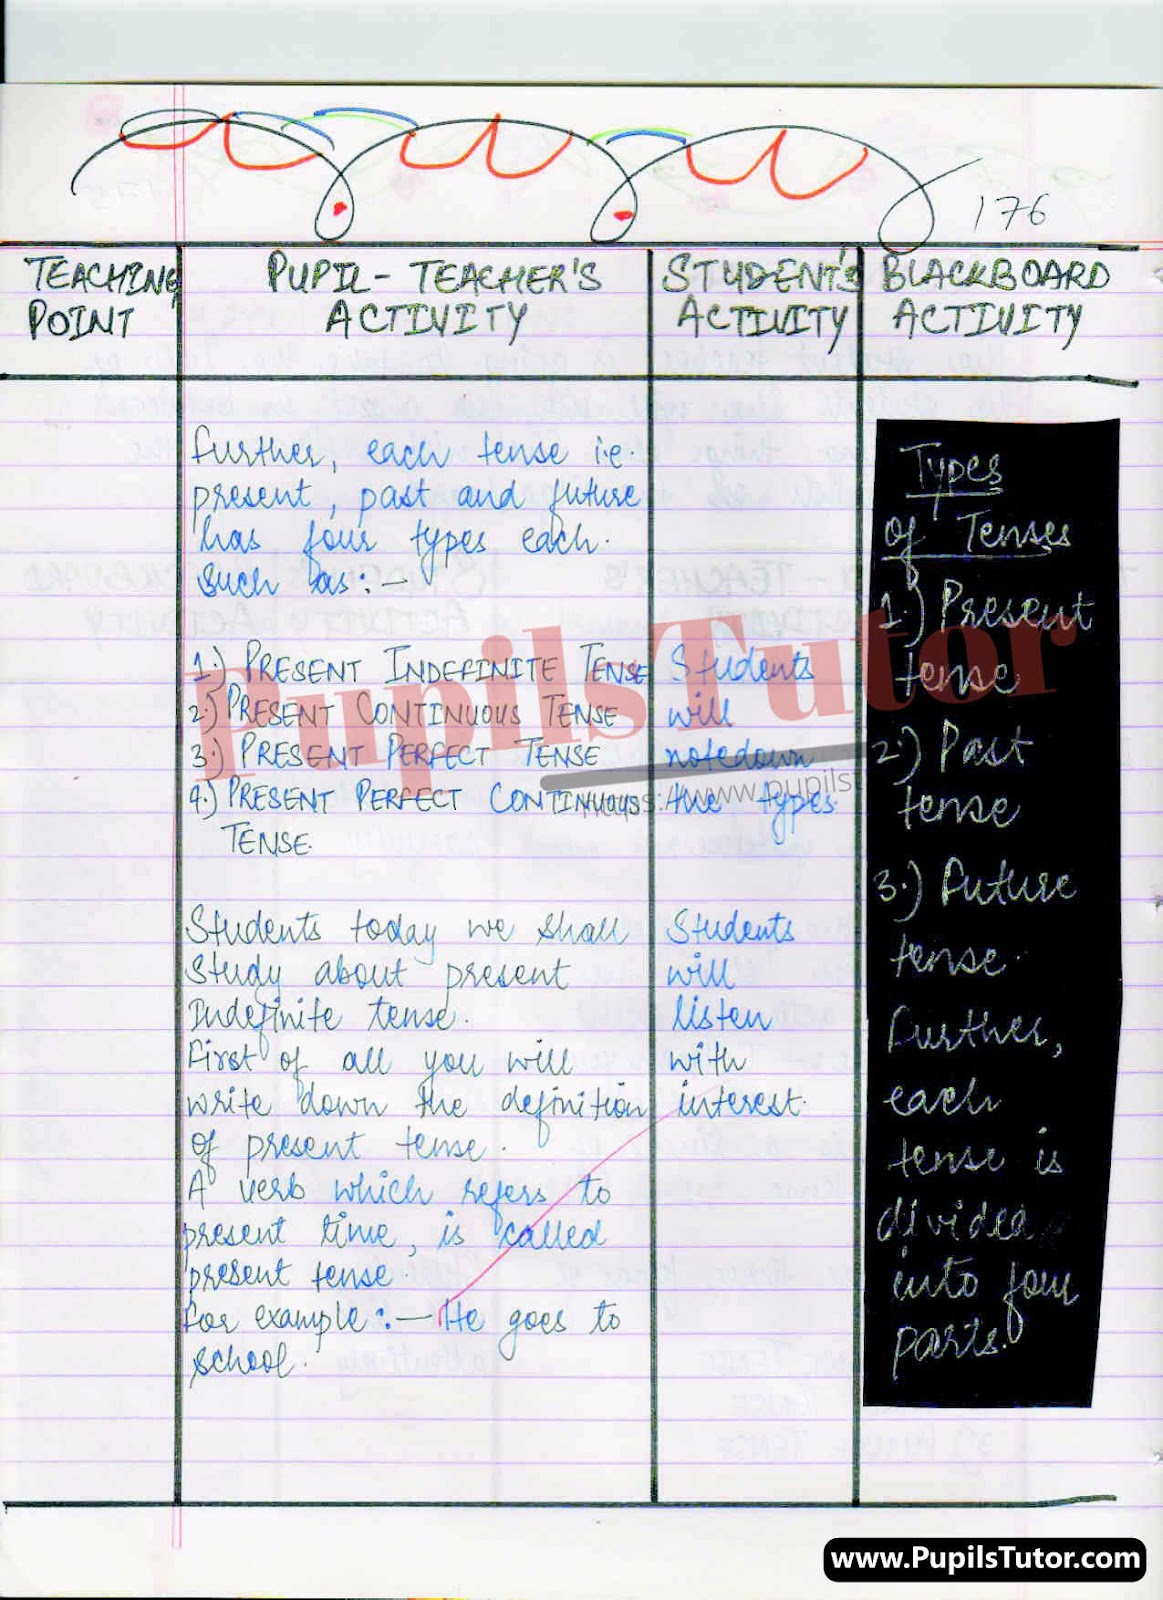 176
TEACHING
POINT
PUPIL - TEACHER'S
ACTIVITY
STUDENT'S
ACTIVITY
BLACKBOARD
ACTIVITY
Further, each tense i.e.
present, past and future
has four types each.
Such as:-
1.) PRESENT INDEFINITE TENSE
2.) PRESENT CONTINUOUS TENSE
3.) PRESENT PERFECT TENSE
4.) PRESENT PERFECT CONTINUOUS
TENSE.
Students today we shall
study about present
Indefinite tense.
First of all you will
write down the definition
of present tense.
A verb which refers to
present time, is called
present tense.
For example:- He goes to
school.
Students
will
notedown
the types.
Students
will
listen
with
interest.
Types
of Tenses
1.) Present
tense
2.) Past
tense
3.) Future
tense.
Further,
each
tense is
divided
into four
parts.
PupilsTutor
www.pupils
www.PupilsTutor.com